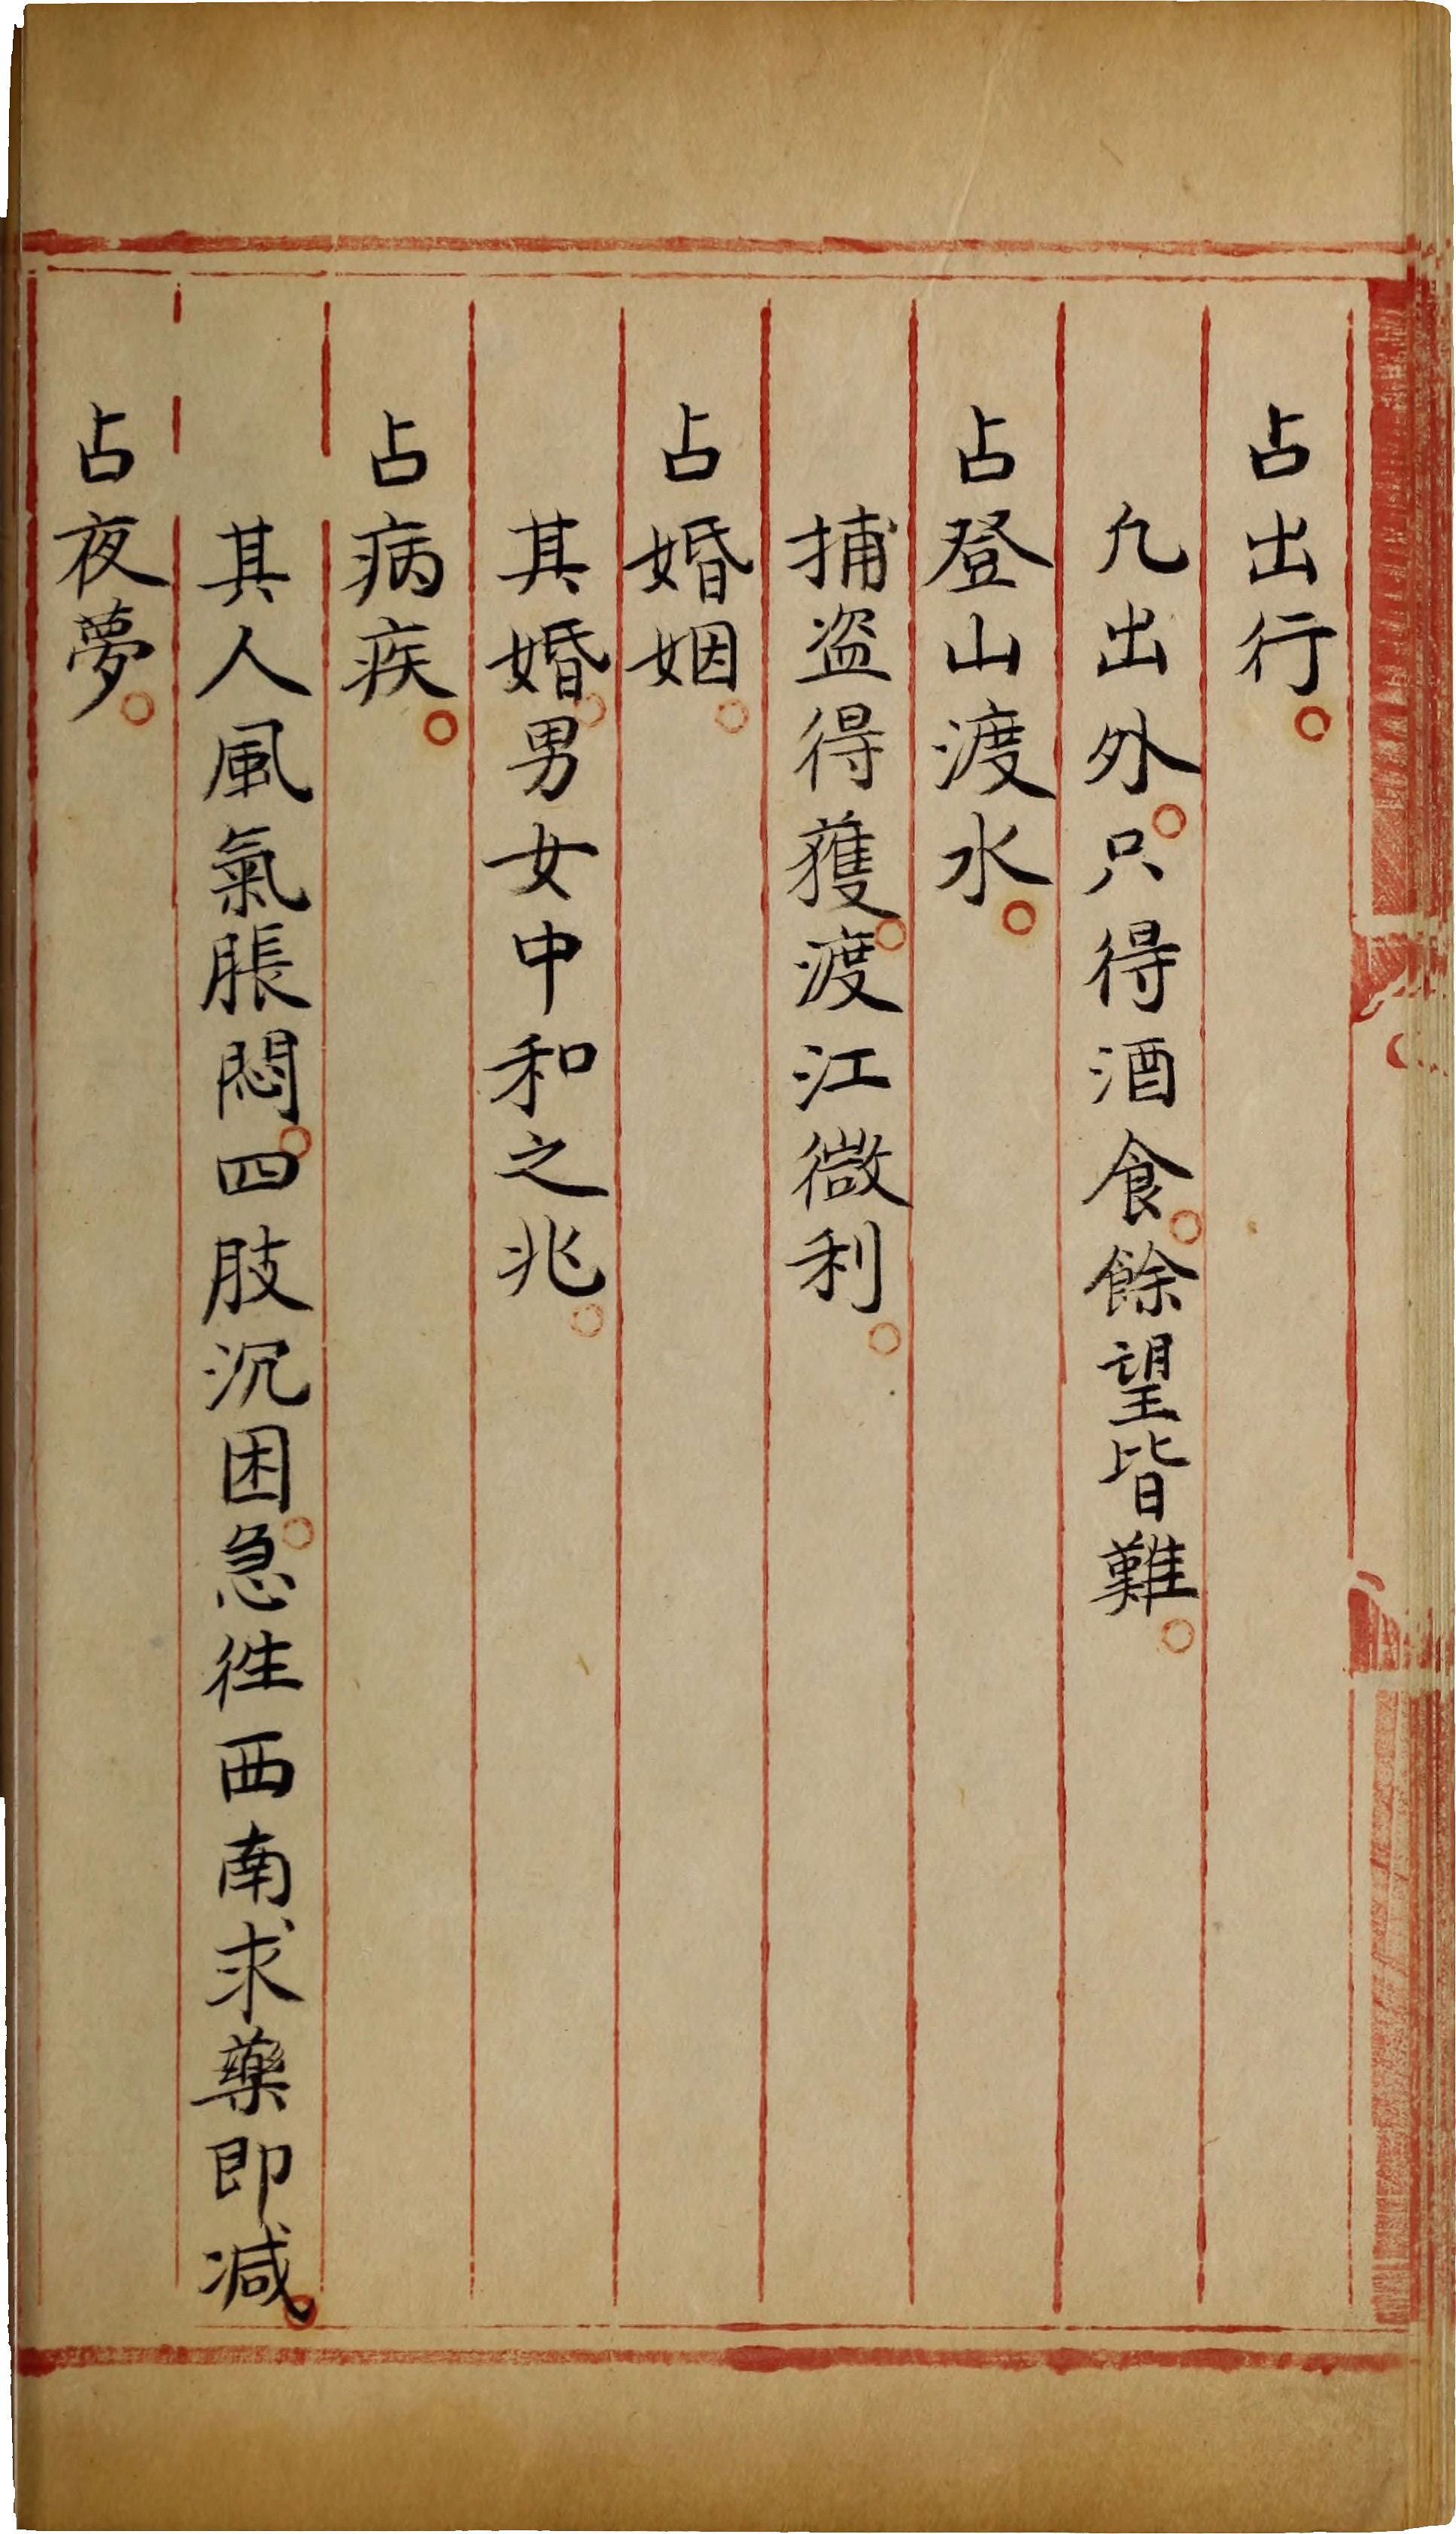 占出行。
凢出外。只得酒食。餘望皆難。
占登山渡水。
捕盗得獲。渡江微利。
占婚姻。
其婚。男女中和之兆。
占病疾。
其人風氣脹悶。四肢沉困。急徃西南求藥即减。
占夜夢。